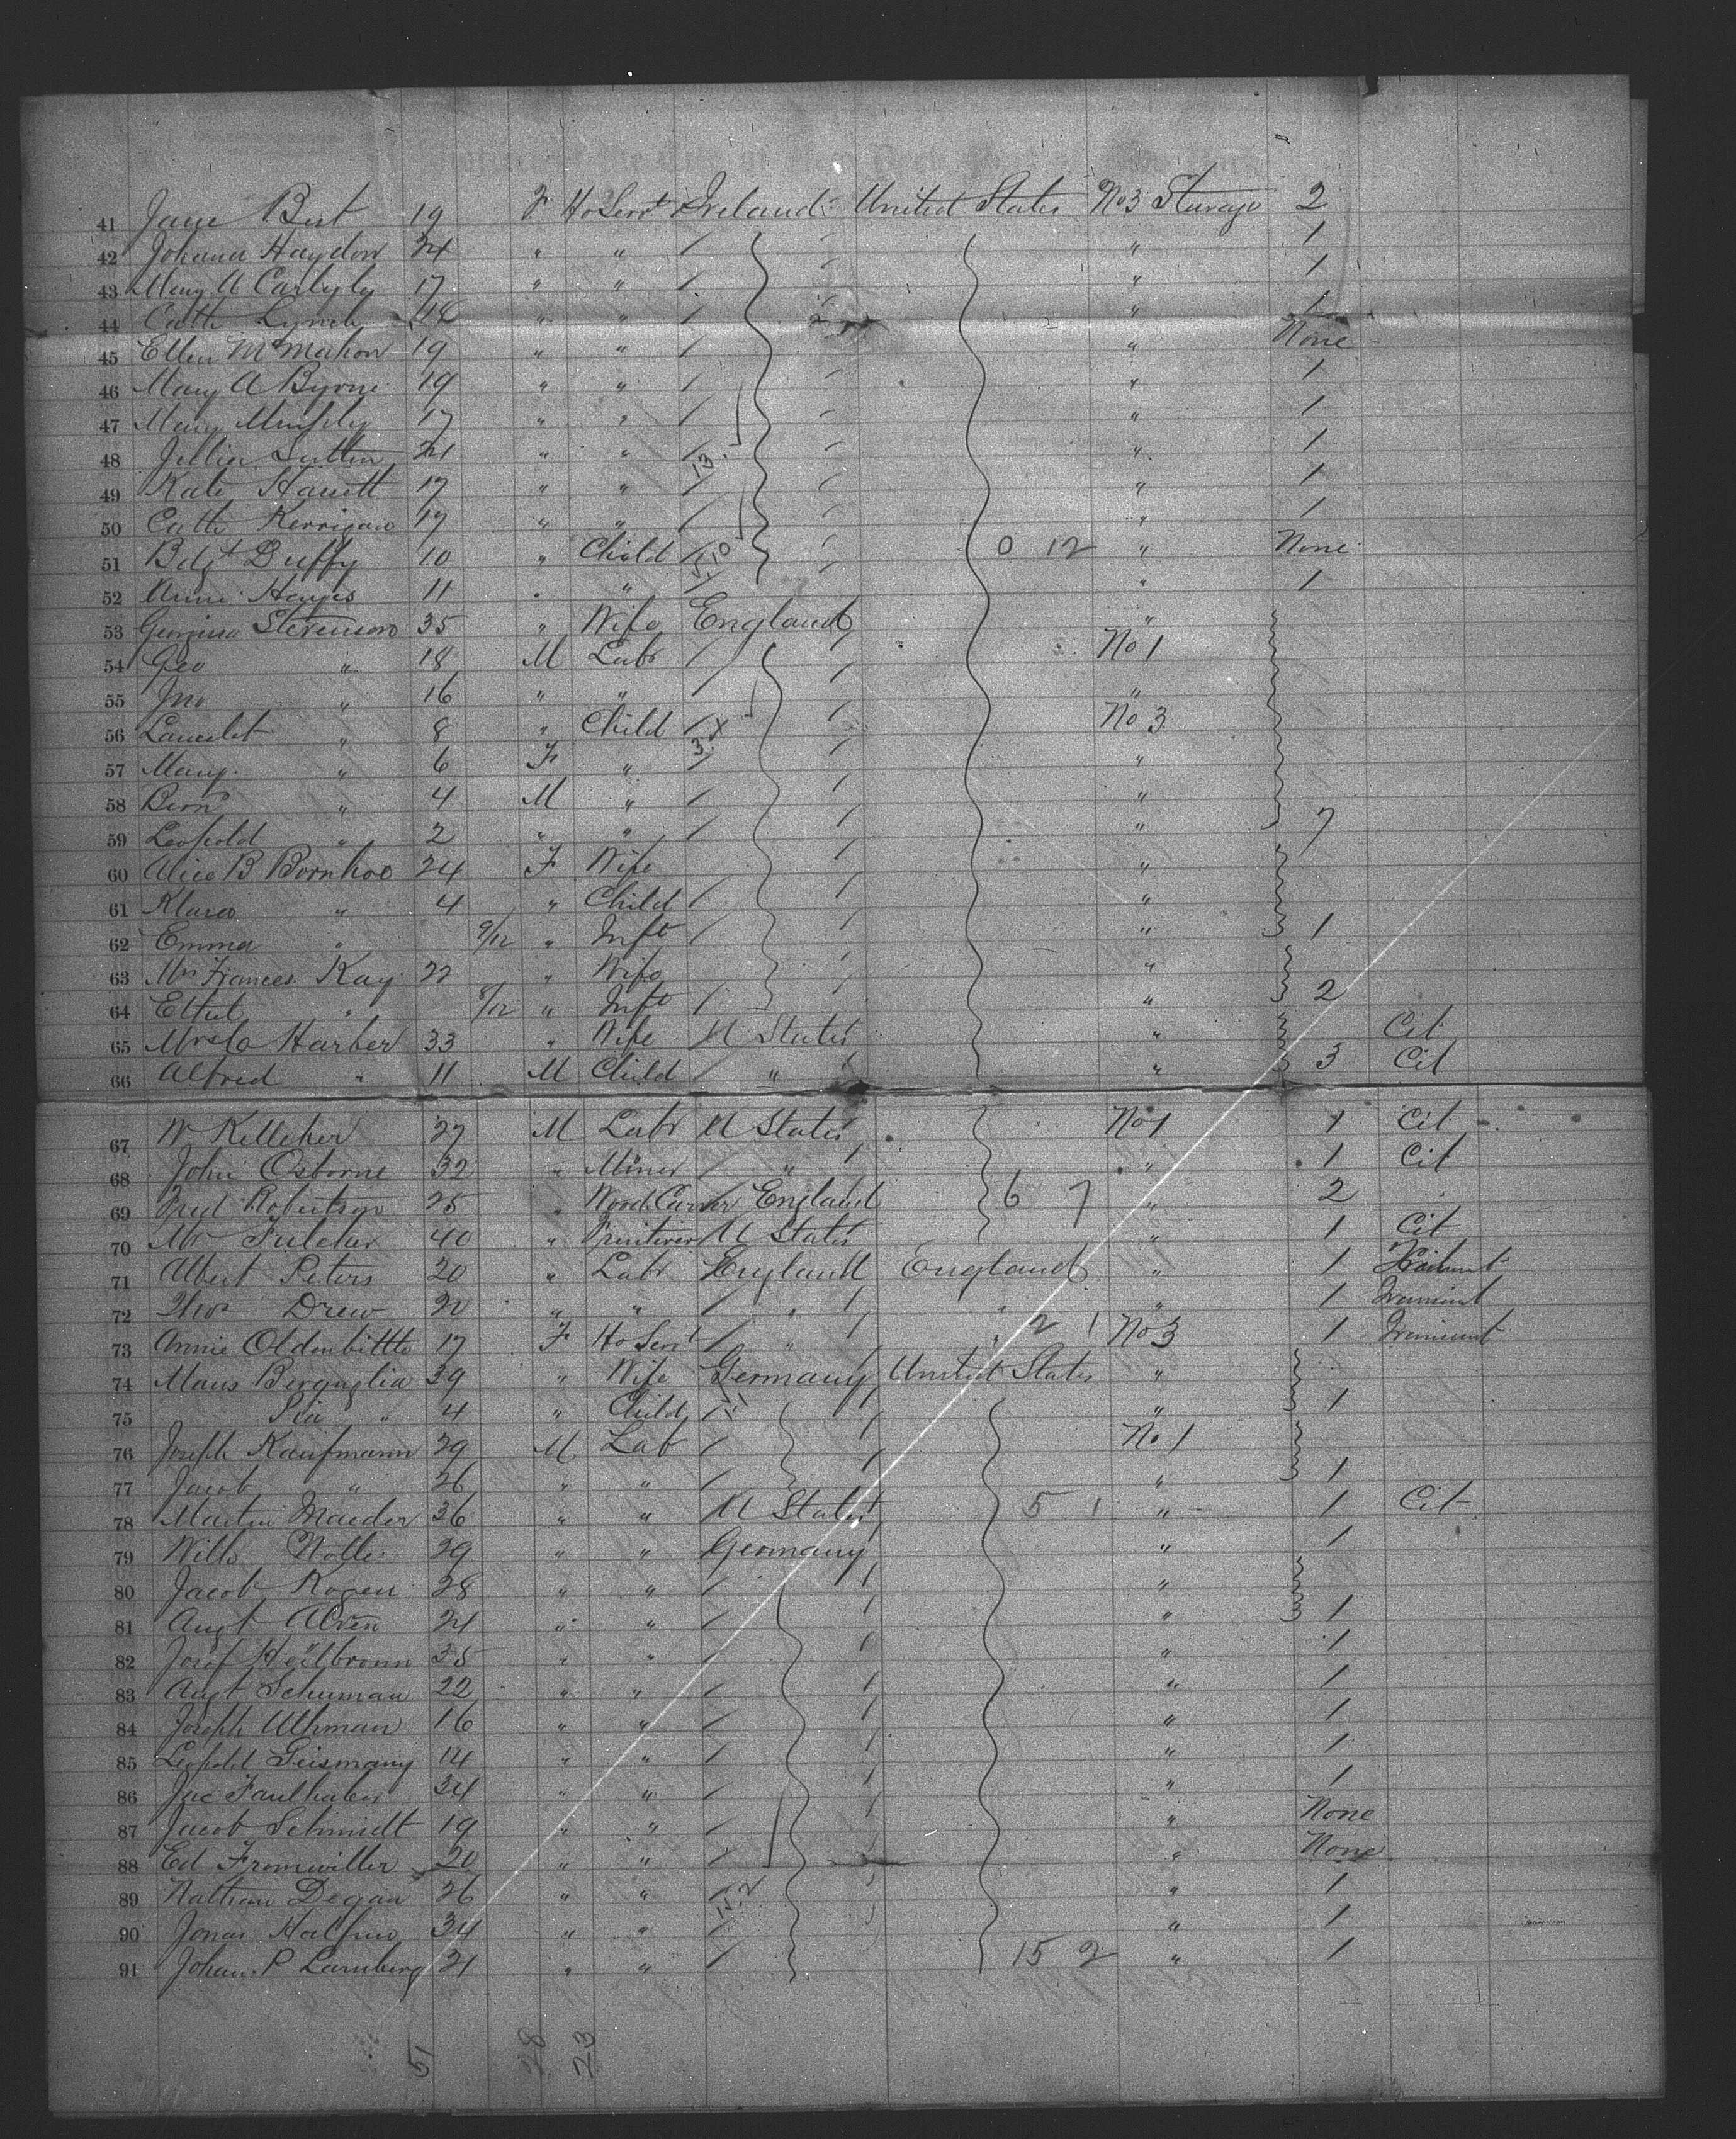 41 Jane Bert 19 F Ho Servt Ireland United States No 3 Sterage 2
42 Johana Haydon 24 " " / " 1
43 Mary A Carlyly 17 " " / " 1
44 Cathe Lynch 18 " " / " 1
45 Ellen McMahon 19 " " / " None
46 Mary A Byrne 19 " " / " 1
47 Mary Murphy 17 " " / " 1
48 Jullia Sutton 21 " " / 13 " 1
49 Kate 17 " " / " 1
50 Cathe Kerrigan 17 " " / " 1
51 Bdgt Duffy 10 " Child / 10 0 12 " None
52 Anne Hayes 11 " " / " 1
53 Georgina Stevenson 35 " Wife England "
54 Geo " 18 M Labr / No 1
55 Jno " 16 " " / "
56 Lancelet " 8 " Child / No 3
57 Mary " 6 F " / "
58 " 4 M " / "
59 Leopold " 2 " " / " 7
60 Alice B Bornhoe 24 F Wife "
61 Klara " 4 " Child / "
62 Emma " 9/12 " Inft / " 1
63 Mrs Frances Kay 22 " Wife "
64 Ethel " 8/12 " Inft / " 2
65 Mrs Harber 33 " Wife U States " Cit
66 Alfred " 11 M Child / " " 3 Cit
67 W Kelleher 27 M Labr U States No 1 1 Cit
68 John Osborne 32 " Miner / " " 1 Cit
69 Fred Robertson 25 " Wood Carver England 6 7 " 2
70 Mr Fulcher 40 " U States " 1 Cit
71 Albert Peters 20 " Labr England England " 1 Transient
72 Thos Drew 20 " " / " " " 1 Transient
73 Annie Oldenbittle 17 F Ho Servt / " " 2 1 No 3 1 Transient
74 Maus Berguglia 39 " Wife Germany United States "
75 Pia " 4 " Child / " 1
76 Joseph Kaufmann 29 M Lab / No 1
77 Jacob " 26 " " / " 1
78 Martin Maeder 36 " " U States 5 1 " 1 Cit
79 Willo Nolle 29 " " Germany " 1
80 Jacob Rogen 28 " " / "
81 Augt Alven 21 " " / " 1
82 Josef Heilbronn 35 " " / " 1
83 Augt Schuman 22 " " / " 1
84 Joseph Ullman 16 " " / " 1
85 Leopold Geismang 14 " " / " 1
86 Jac Faulhaber 34 " " / " 1
87 Jacob Schmidt 19 " " / " None
88 Ed Fromwiller 20 " " / " None
89 Nathan Degan 26 " " / " 1
90 Jonas Halfin 34 " " / " 1
91 Johan P Lamberg 21 " " / 15 2 " 1
51 28 23